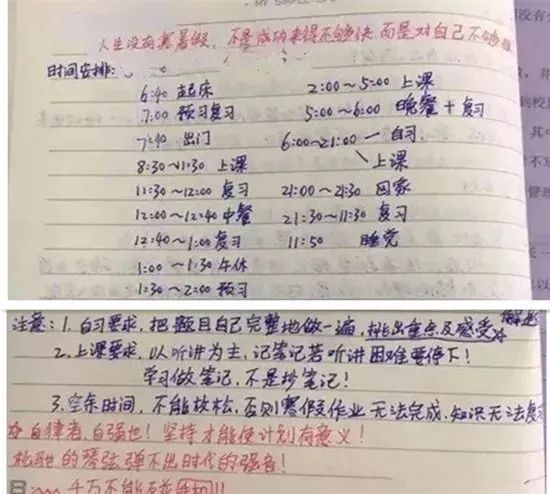 人生没有寒暑假，不是成功来得不够快，而是对自己不够狠
时间安排：
6:40 起床
7:00 预习复习
7:40 出门
8:30~11:30 上课
11:30~12:00 复习
12:00~12:40 中餐
12:40~1:00 复习
1:00~1:30 午休
1:30~2:00 预习
2:00~5:00 上课
5:00~6:00 晚餐+复习
6:00~21:00 自习
上课
21:00~21:30 回家
21:30~11:30 复习
11:50 睡觉
注意：1. 自习要求，把题目自己完整地做一遍，挑出重点及感受
2. 上课要求，以听讲为主，记笔记若听讲困难要停下！
学习做笔记，不是抄笔记！
3. 空余时间，不能放松，否则寒假作业无法完成，知识无法复
自律者，自强也！坚持才能使计划有意义！
松驰的琴弦弹不出时代的强音！
千万不能玩手机!!